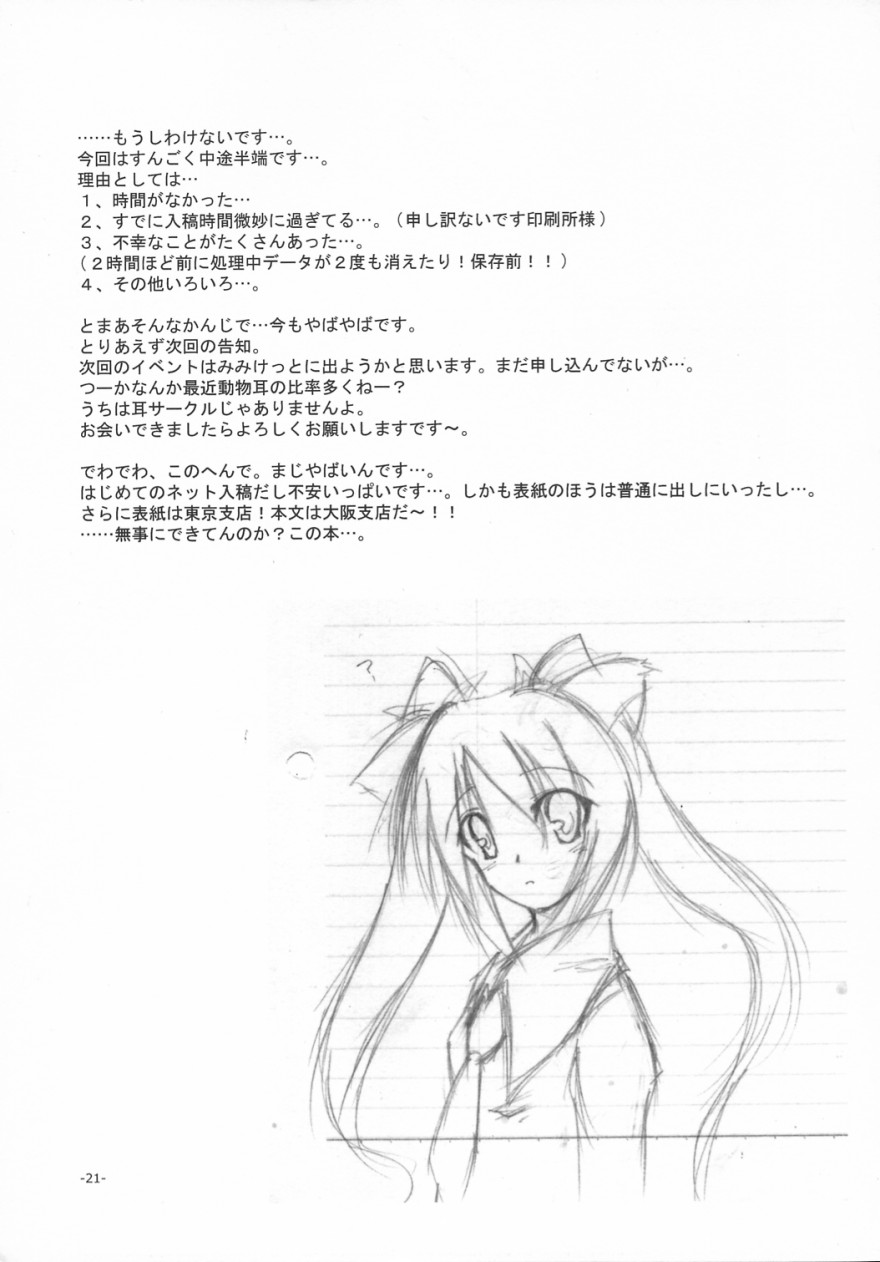 ……もうしわけないです…。
今回はすんごく中途半端です…。
理由としては…
１、時間がなかった…
２、すでに入稿時間微妙に過ぎてる…。（申し訳ないです印刷所様）
３、不幸なことがたくさんあった…。
（２時間ほど前に処理中データが２度も消えたり！保存前！！）
４、その他いろいろ…。
とまあそんなかんじで…今もやばやばです。
とりあえず次回の告知。
次回のイベントはみみけっとに出ようかと思います。まだ申し込んでないが…。
つーかなんか最近動物耳の比率多くねー？
うちは耳サークルじゃありませんよ。
お会いできましたらよろしくお願いしますです～。
でわでわ、このへんで。まじやばいんです…。
はじめてのネット入稿だし不安いっぱいです…。しかも表紙のほうは普通に出しにいったし…。
さらに表紙は東京支店！本文は大阪支店だ～！！
……無事にできてんのか？この本…。
?
-21-